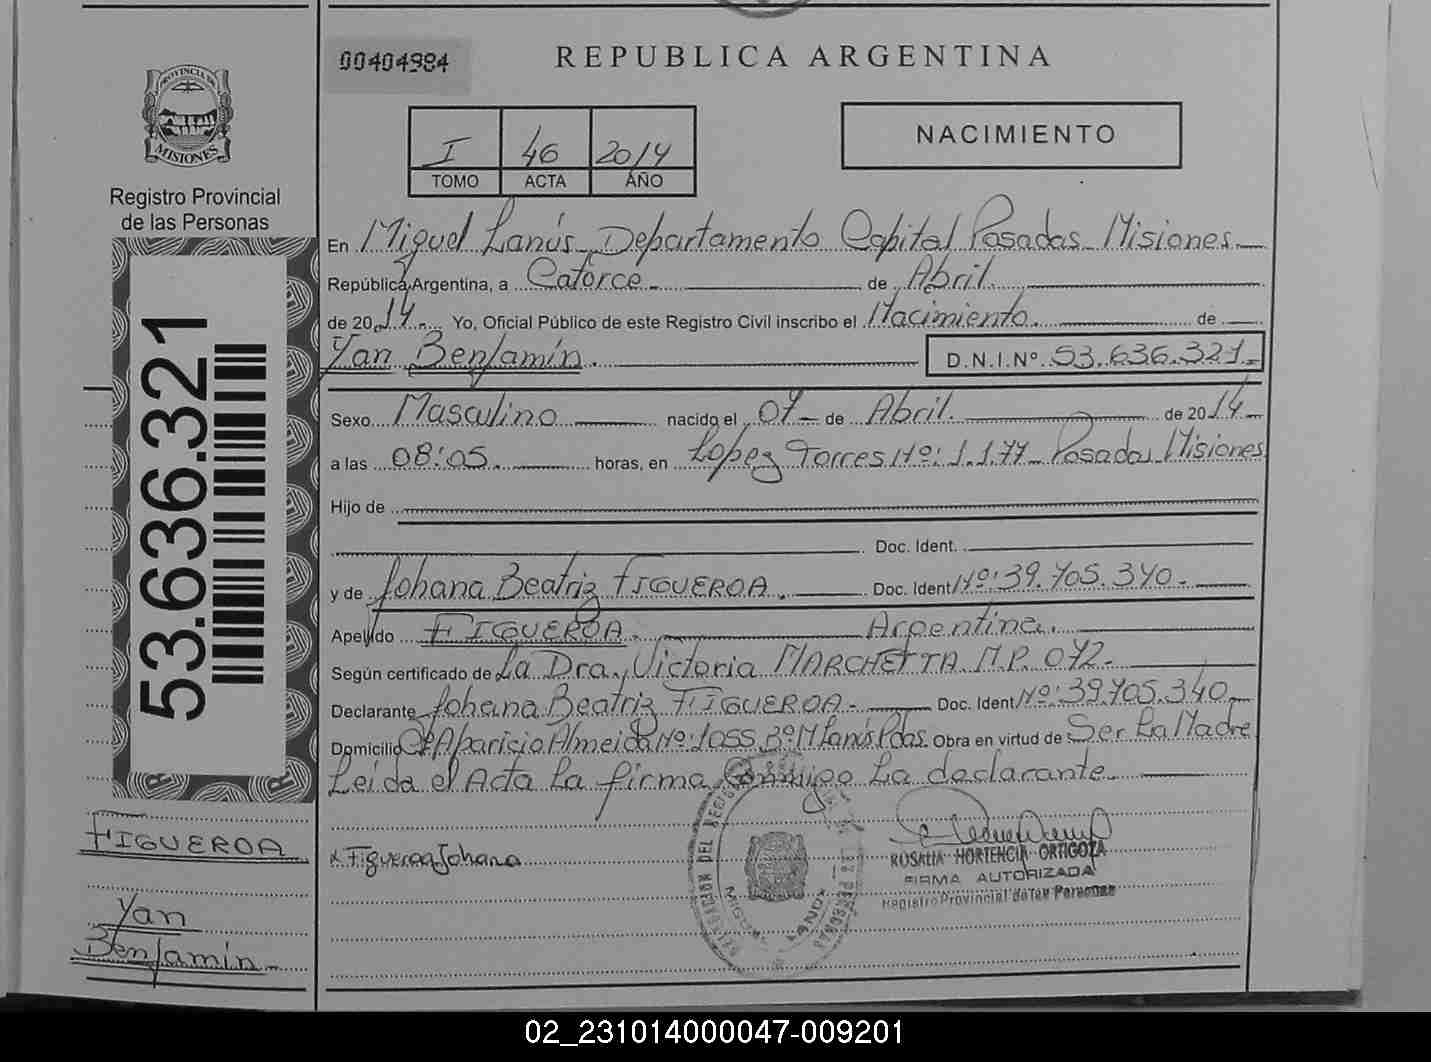 00404984
REPUBLICA ARGENTINA
PROVINCIA DE
MISIONES
Registro Provincial
de las Personas
I 46 2014
TOMO ACTA AÑO
NACIMIENTO
En Miguel Lanús Departamento Capital Posadas Misiones
República Argentina, a Catorce de Abril
de 2014 Yo, Oficial Público de este Registro Civil inscribo el Nacimiento de
Yan Benjamín. D.N.I.Nº 53.636.321
Sexo Masculino nacido el 07 de Abril de 2014
a las 08:05 horas, en Lopez Torres Nº: 1.177 Posadas Misiones
Hijo de
Doc. Ident.
y de Johana Beatriz FIGUEROA. Doc. Ident Nº: 39.705.340
Apellido FIGUEROA. Argentina.
Según certificado de La Dra. Victoria MARCHETTA M.P. 072
Declarante Johana Beatriz FIGUEROA Doc. Ident Nº: 39.705.340
Domicilio Aparicio Almeida Nº: 1055 Bº M Lanús Pdas. Obra en virtud de Ser La Madre
Leída el Acta La firma Conmigo La declarante
x Figueroa Johana
ROSALIA HORTENCIA ORTIGOZA
FIRMA AUTORIZADA
Registro Provincial de las Personas
53.636.321
FIGUEROA
Yan
Benjamín
02_231014000047-009201